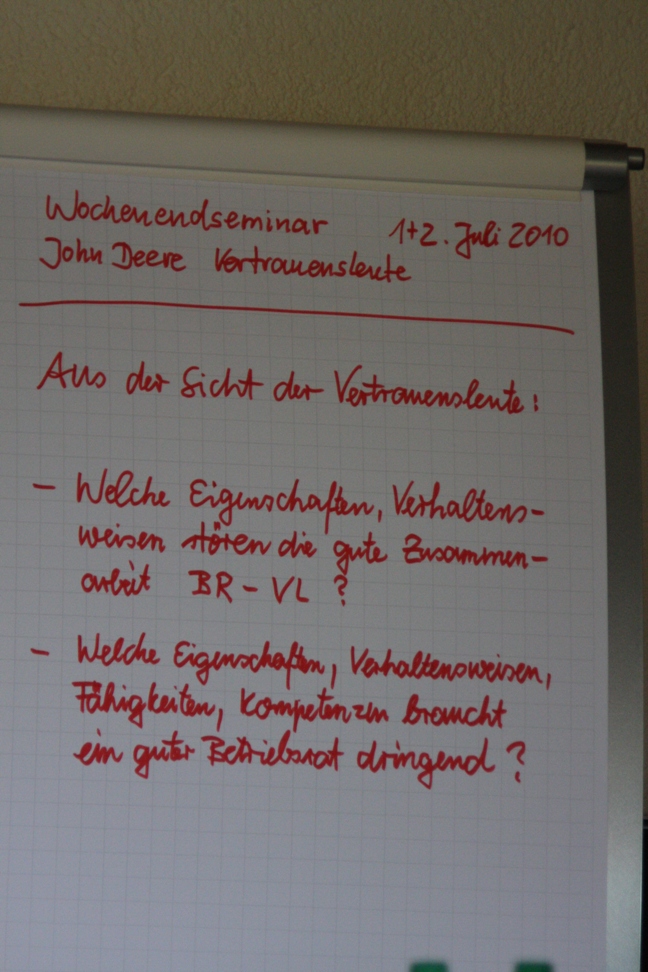 Wochenendseminar 1+2. Juli 2010
John Deere Vertrauensleute
Aus der Sicht der Vertrauensleute:
- Welche Eigenschaften, Verhaltens-
weisen stören die gute Zusammen-
arbeit BR - VL ?
- Welche Eigenschaften, Verhaltensweisen,
Fähigkeiten, Kompetenzen braucht
ein guter Betriebsrat dringend ?